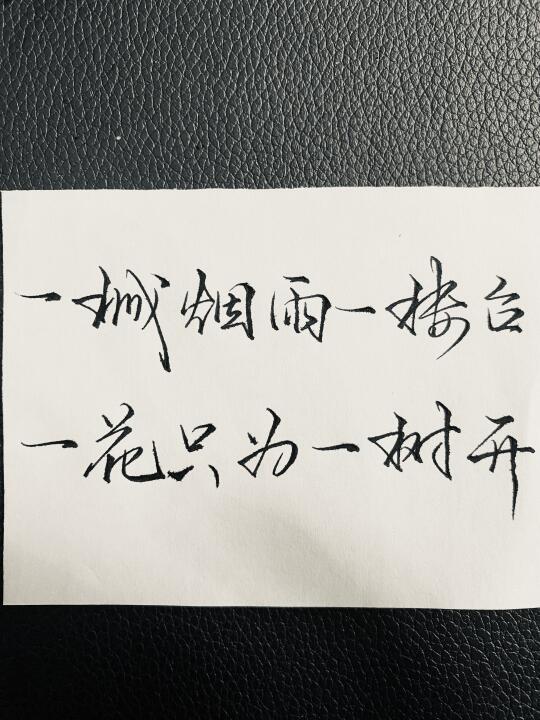 一城烟雨一楼台
一花只为一树开